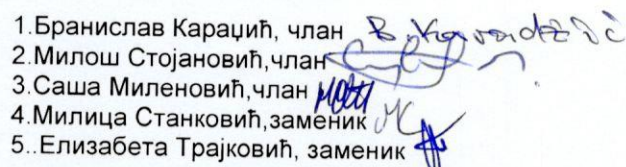 1.Бранислав Караџић, члан B. Karadžić
2.Милош Стојановић,члан
3.Саша Миленовић,члан
4.Милица Станковић,заменик
5..Елизабета Трајковић, заменик